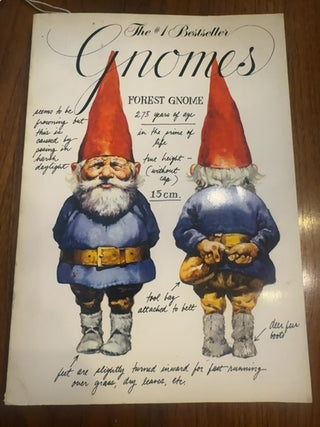 The #1 Bestseller
Gnomes
FOREST GNOME
275 years of age
in the prime of
life
true height -
(without
cap)
15 cm.
seems to be
frowning but
this is
caused by
posing in
harsh
daylight
tool bag
attached to belt
deer fur
boots
feet are slightly turned inward for fast running
over grass, dry leaves, etc.